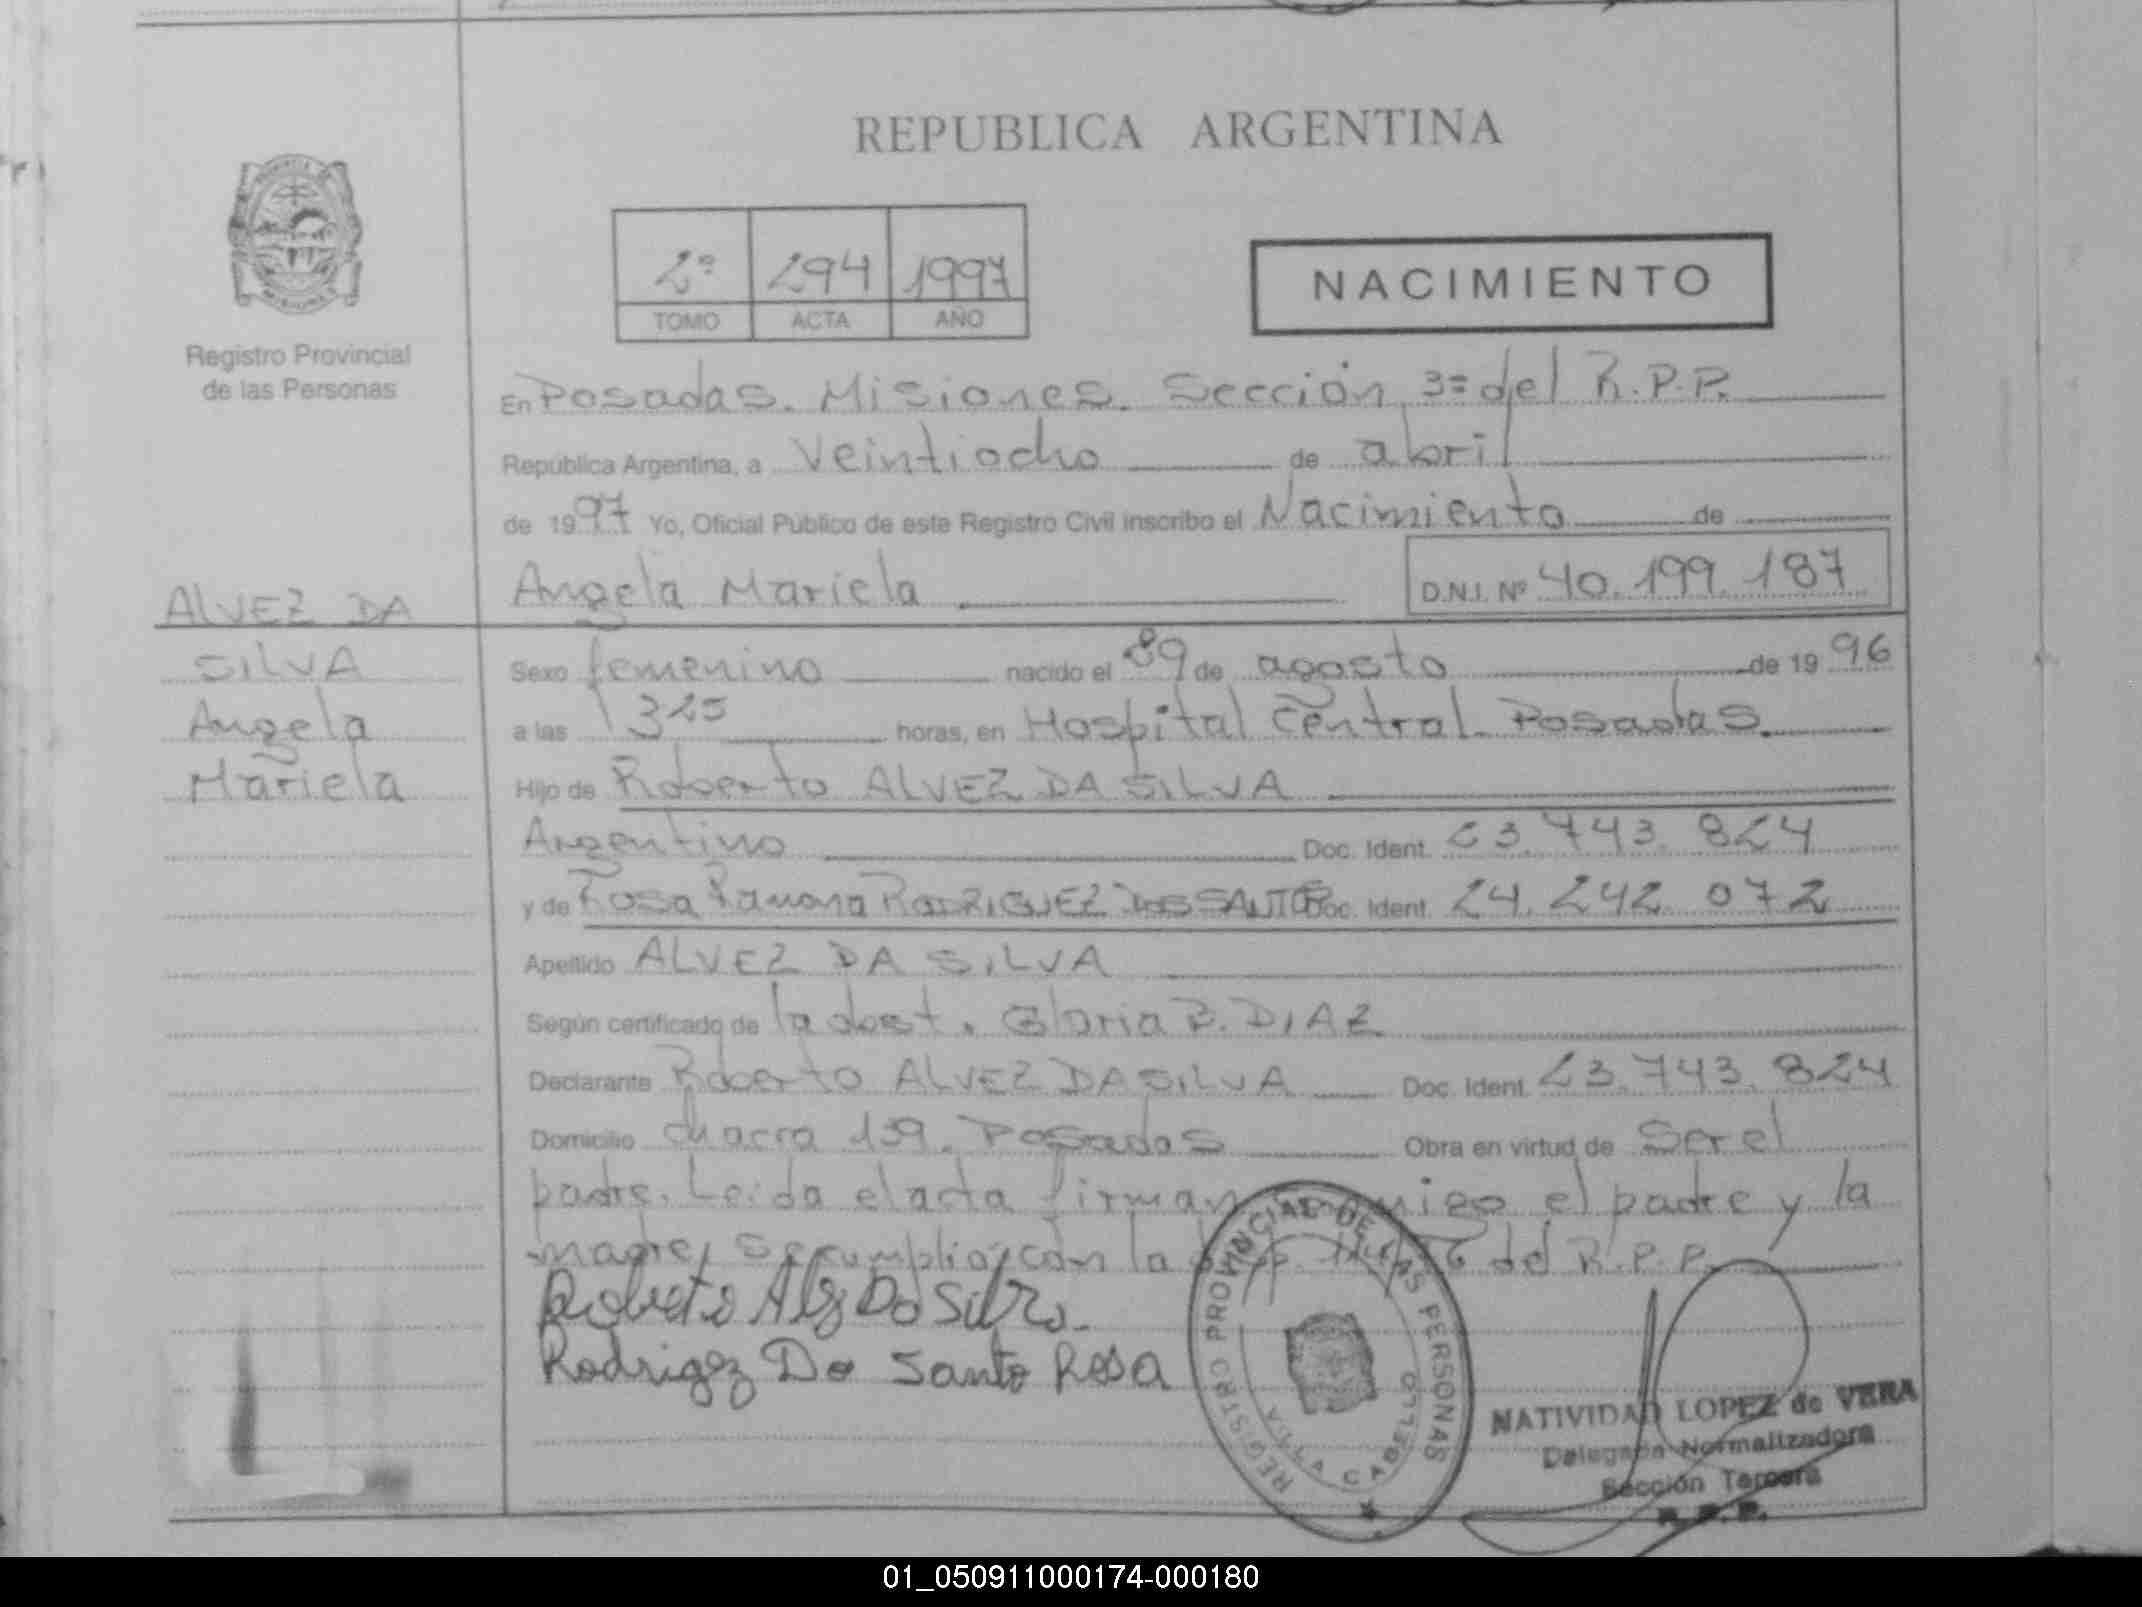 REPUBLICA ARGENTINA
2º 294 1997
TOMO ACTA AÑO
NACIMIENTO
Registro Provincial
de las Personas
En Posadas. Misiones. Sección 3ª del R.P.P.
República Argentina, a Veintiocho de abril
de 1997 Yo, Oficial Público de este Registro Civil inscribo el Nacimiento de
Angela Mariela D.N.I. Nº 40.199.187
ALVEZ DA
SILVA
Angela
Mariela
Sexo femenino nacido el 09 de agosto de 1996
a las 1325 horas, en Hospital Central. Posadas.
Hijo de Roberto ALVEZ DA SILVA
Argentino Doc. Ident. 23.743.824
y de Rosa Ramona RODRIGUEZ DOS SANTOS Doc. Ident. 24.242.072
Apellido ALVEZ DA SILVA
Según certificado de la obst. Gloria B. DIAZ
Declarante Roberto ALVEZ DA SILVA Doc. Ident. 23.743.824
Domicilio chacra 159. Posadas Obra en virtud de Ser el
padre. Leida el acta firman el padre y la
madre, se cumplió con la del R.P.P.
Rodrigez Do Santo Rosa
REGISTRO PROVINCIAL DE LAS PERSONAS
VILLA CABELLO
NATIVIDAD LOPEZ de VERA
Delegada Normalizadora
Sección Tercera
R.P.P.
01_050911000174-000180